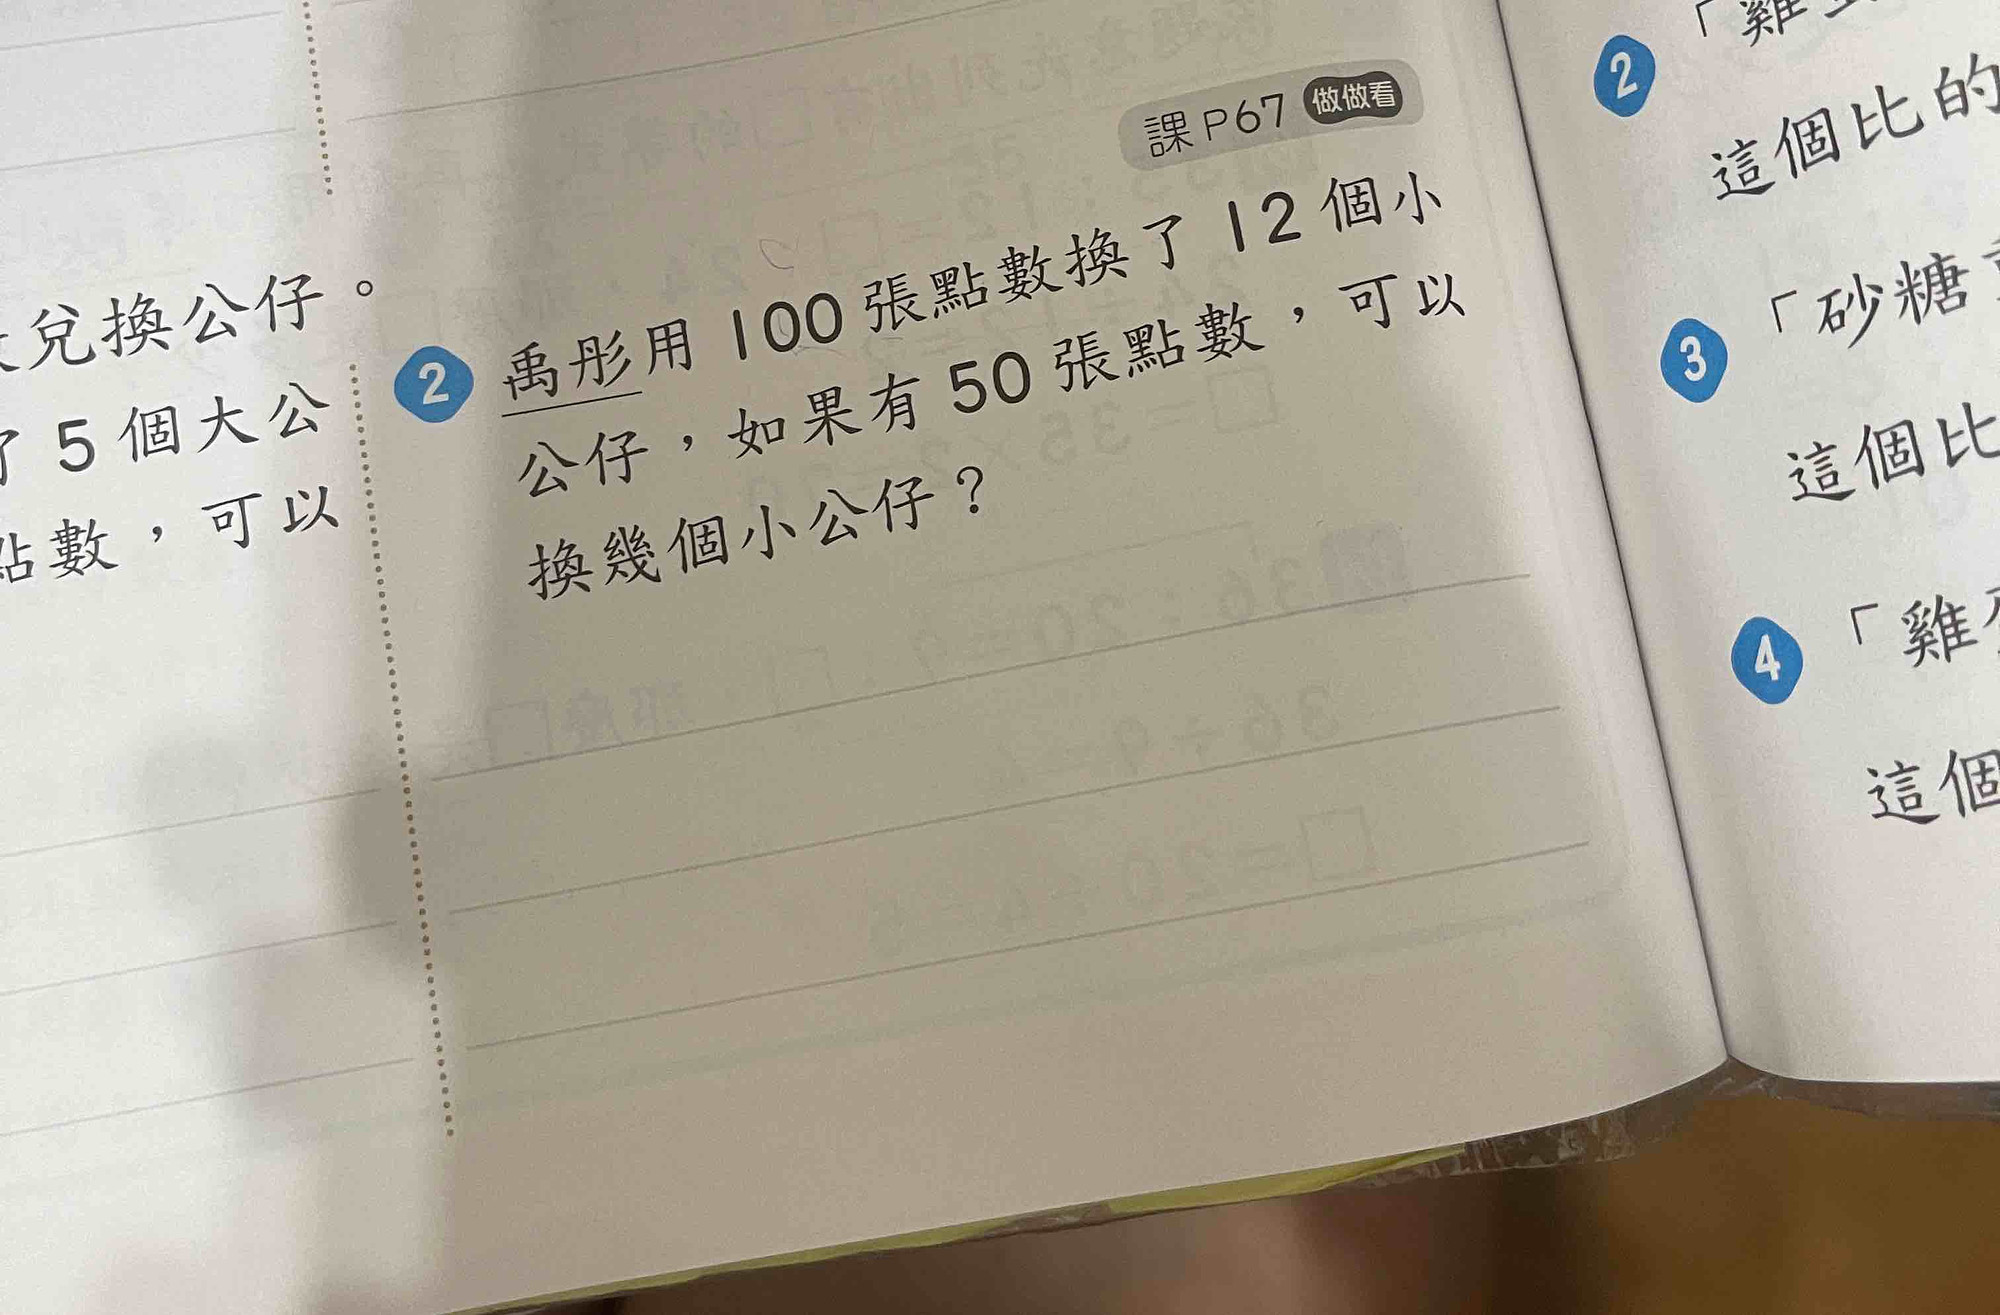 兌換公仔。
5個大公
點數，可以
課P67 做做看
2 禹彤用100張點數換了12個小
公仔，如果有50張點數，可以
換幾個小公仔？
「雞
2
這個比的
3 「砂糖
這個比
4 「雞
這個